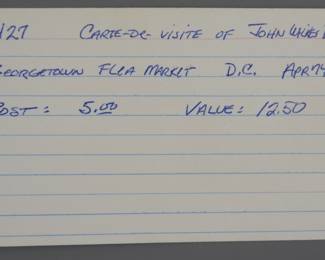 127 CARTE-DE-VISITE OF JOHN WILKES
GEORGETOWN FLEA MARKET D.C. APR 74
COST: 5.00 VALUE: 12.50